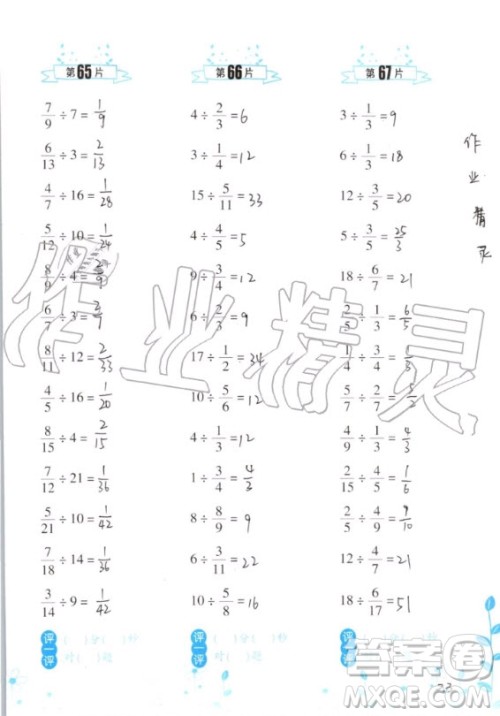 第65片
7/9 ÷ 7 = 1/9
6/13 ÷ 3 = 2/13
4/7 ÷ 16 = 1/28
5/12 ÷ 10 = 1/24
8/9 ÷ 4 = 2/9
6/7 ÷ 3 = 2/7
8/11 ÷ 12 = 2/33
4/5 ÷ 16 = 1/20
8/15 ÷ 4 = 2/15
7/12 ÷ 21 = 1/36
5/21 ÷ 10 = 1/42
7/18 ÷ 14 = 1/36
3/14 ÷ 9 = 1/42
评一评
( )分( )秒
对( )题
第66片
4 ÷ 2/3 = 6
3 ÷ 1/4 = 12
15 ÷ 5/11 = 33
4 ÷ 4/5 = 5
9 ÷ 3/4 = 12
6 ÷ 2/3 = 9
17 ÷ 1/2 = 34
10 ÷ 5/6 = 12
4 ÷ 1/3 = 12
1 ÷ 3/4 = 4/3
8 ÷ 8/9 = 9
6 ÷ 3/11 = 22
10 ÷ 5/8 = 16
评一评
( )分( )秒
对( )题
第67片
3 ÷ 1/3 = 9
6 ÷ 1/3 = 18
12 ÷ 3/5 = 20
5 ÷ 3/5 = 25/3
18 ÷ 6/7 = 21
2/5 ÷ 1/3 = 6/5
2/7 ÷ 3/4 =
5/7 ÷ 2/7 = 5/2
4/9 ÷ 1/3 = 4/3
2/15 ÷ 4/5 = 1/6
2/5 ÷ 4/9 = 9/10
12 ÷ 4/7 = 21
18 ÷ 6/17 = 51
评一评
作业精灵
作业精灵
答案圈
MXQE.COM
23